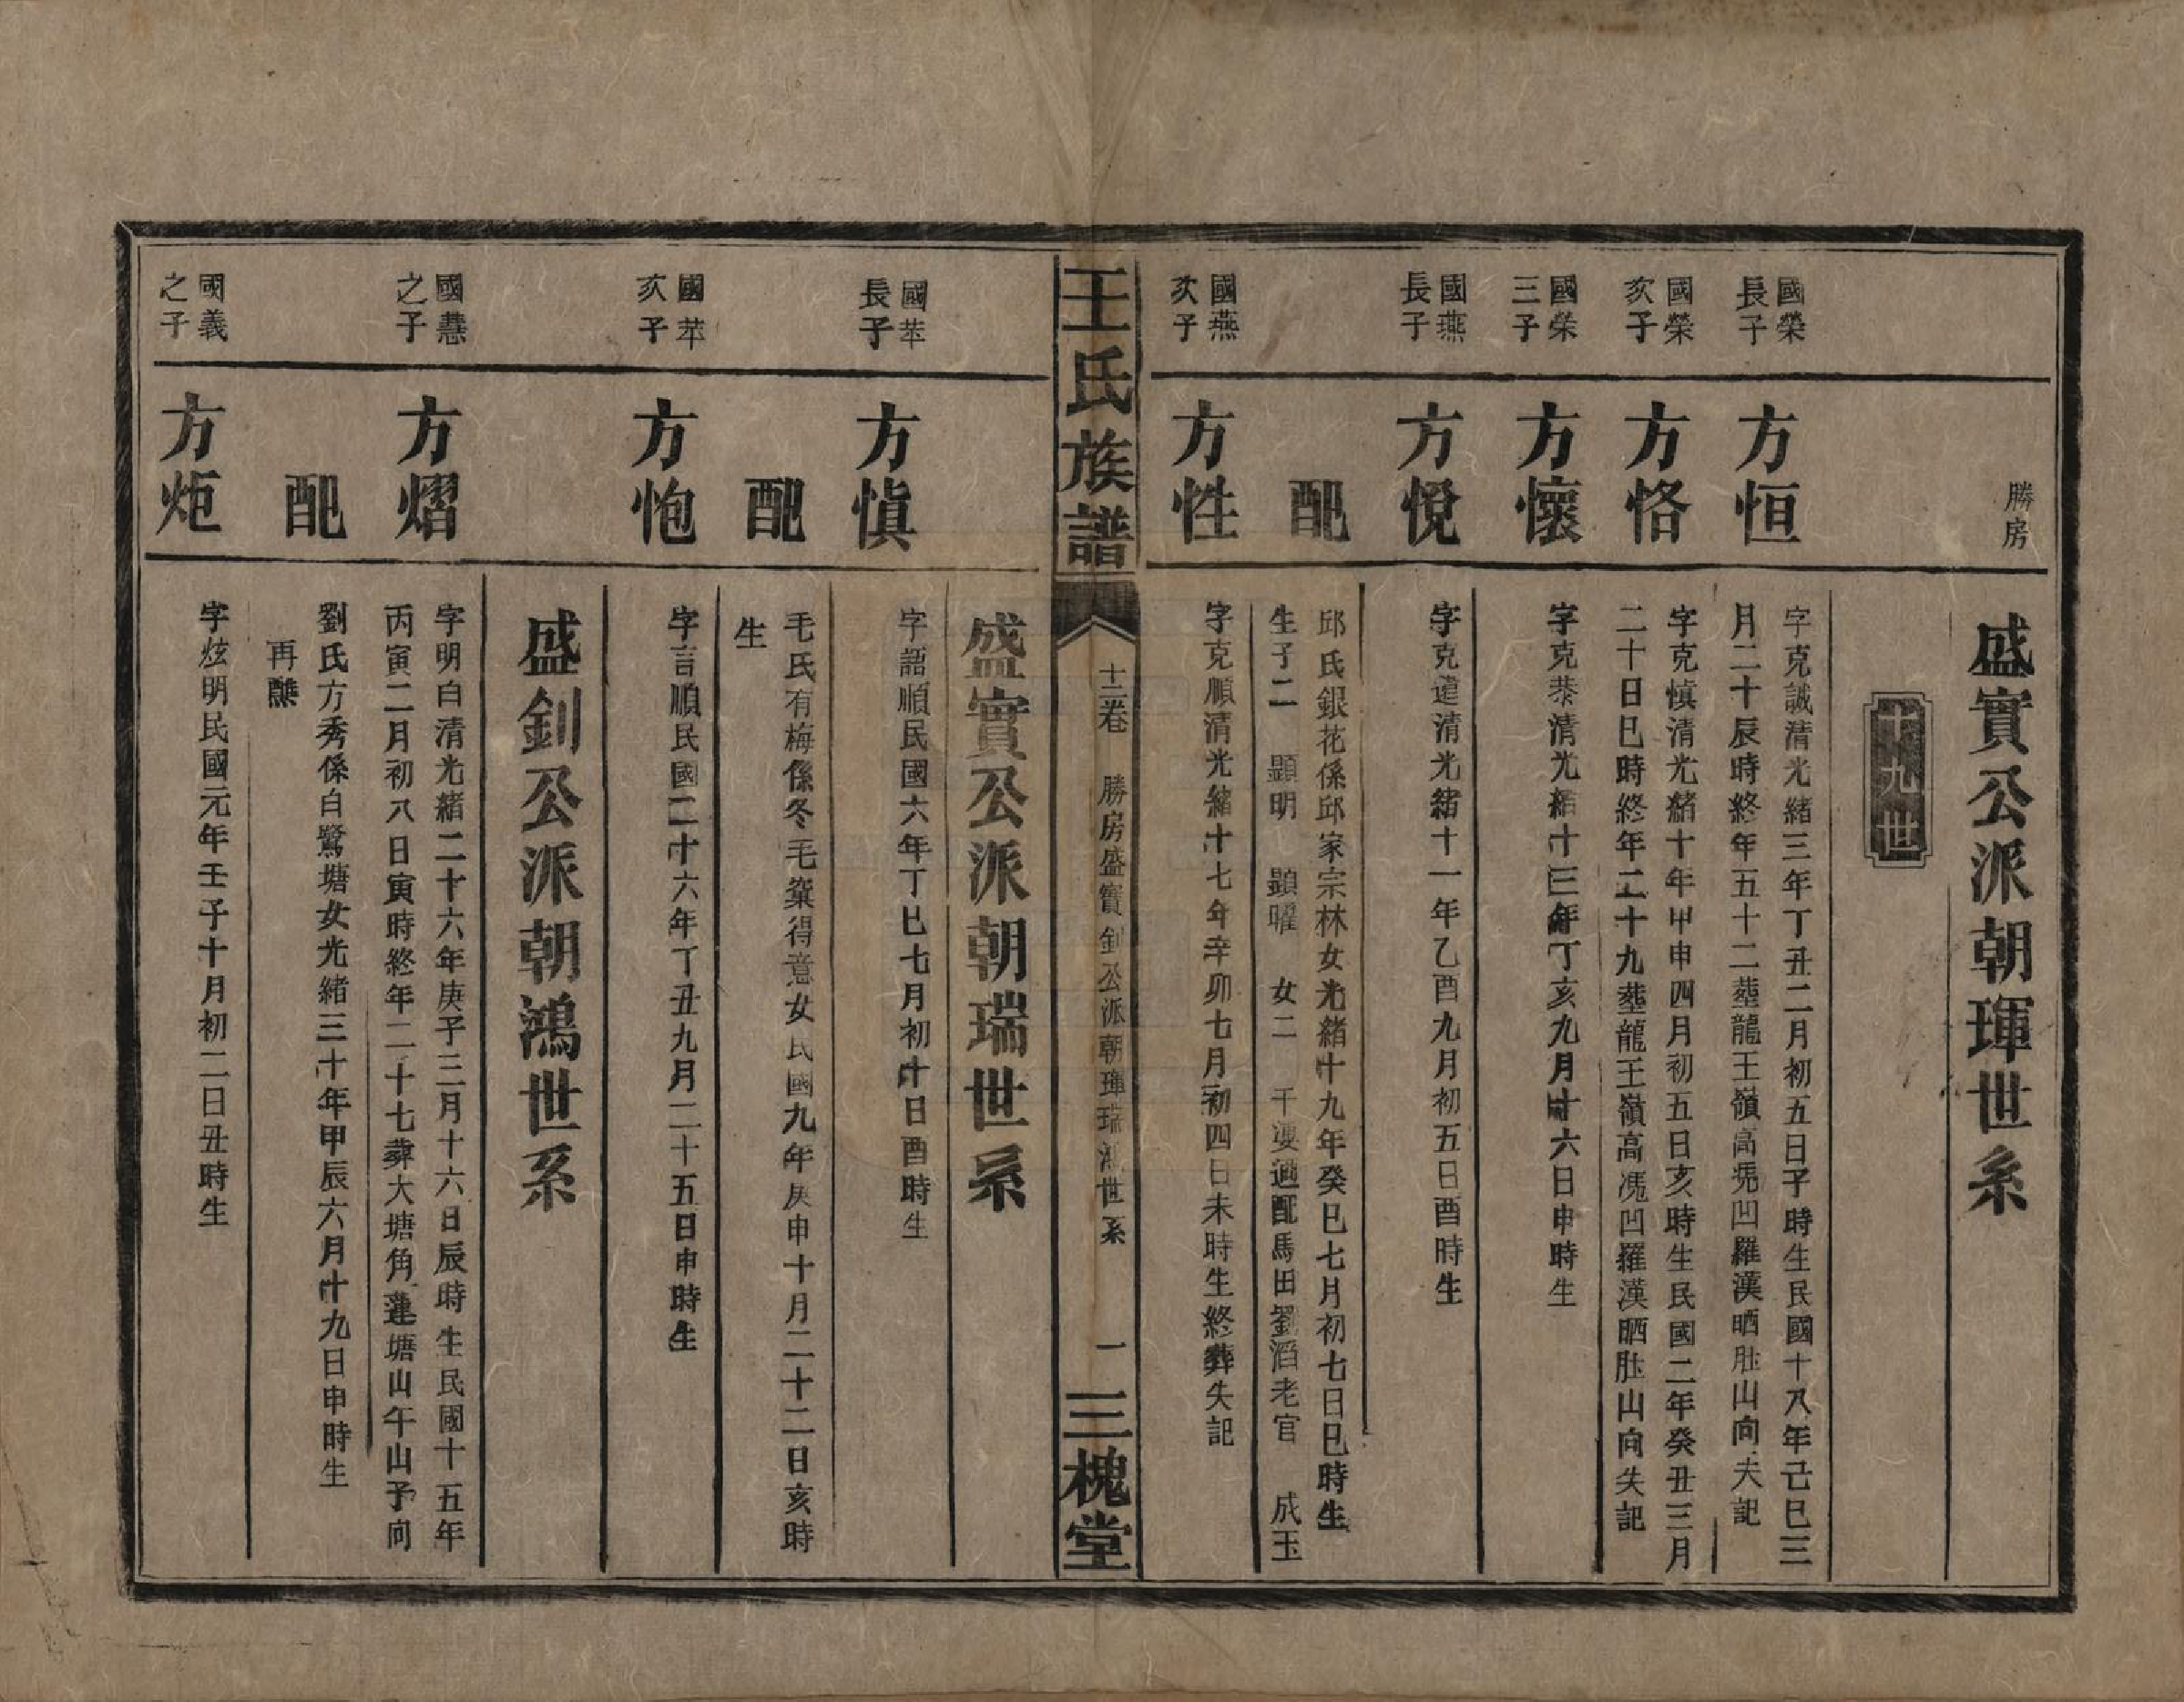 勝房
盛實公派朝琿世系
十九世
國榮長子
方恒
字克誠清光緒三年丁丑二月初五日子時生民國十八年己巳三
月二十辰時終年五十二塟龍王嶺高嵬凹羅漢晒肚山向失記
國榮次子
方恪
字克慎清光緒十年甲申四月初五日亥時生民國二年癸丑三月
二十日巳時終年二十九塟龍王嶺高嵬凹羅漢晒肚山向失記
國榮三子
方懷
字克恭清光緒十三年丁亥九月十六日申時生
國燕長子
方悅
字克達清光緒十一年乙酉九月初五日酉時生
配
邱氏銀花係邱家宗林女光緒十九年癸巳七月初七日巳時生
生子二 顯明 顯曜 女二 千 適配馬田劉滔老官 成玉
國燕次子
方性
字克順清光緒十七年辛卯七月初四日未時生終葬失記
王氏族譜
十二卷 勝房盛實釗公派朝琿瑞鴻世系 一
三槐堂
盛實公派朝瑞世系
國苹長子
方慎
字詔順民國六年丁巳七月初十日酉時生
配
毛氏有梅係冬毛窠得意女民國九年庚申十月二十二日亥時
生
國苹次子
方怉
字言順民國二十六年丁丑九月二十五日申時生
盛釗公派朝鴻世系
國慧之子
方熠
字明白清光緒二十六年庚子三月十六日辰時生民國十五年
丙寅二月初八日寅時終年二十七葬大塘角蓮塘山午山子向
配
劉氏方秀係白鷺塘女光緒三十年甲辰六月十九日申時生
再醮
國義之子
方炬
字炫明民國元年壬子十月初二日丑時生